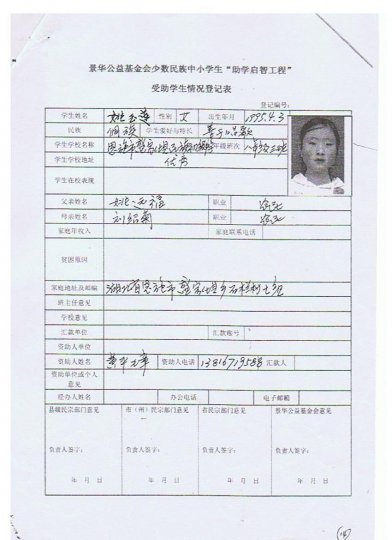 景华公益基金会少数民族中小学生“助学启智工程”
受助学生情况登记表
登记编号：
学生姓名 姚玉莲 性别 女 出生年月 1995.4.3
民族 侗族 学生爱好与特长
学生学校名称 年级班次
学生学校地址
学生在校表现 优秀
父亲姓名 职业 农民
母亲姓名 刘绍菊 职业 农民
家庭年收入 家庭联系电话
贫困原因
家庭地址及邮编 湖北省恩施市
班主任意见
学校意见
汇款单位 汇款账号
资助人单位
资助人姓名 资助人电话 13816719588 汇款人
资助单位或个人意见
经办人姓名 办公电话 电子邮箱
县级民宗部门意见 市（州）民宗部门意见 省民宗部门意见 景华公益基金会意见
负责人签字： 负责人签字： 负责人签字： 负责人签字：
年 月 日 年 月 日 年 月 日 年 月 日